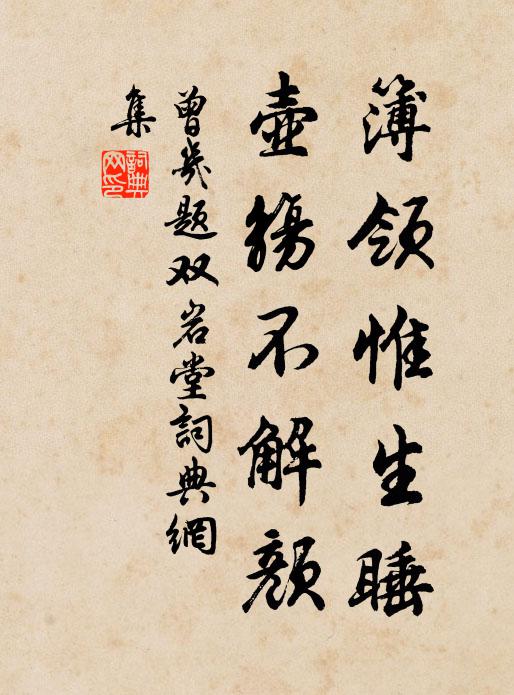 簿领惟生睡
壶觞不解颜
曾几题双岩堂词典網
集
詞典網印